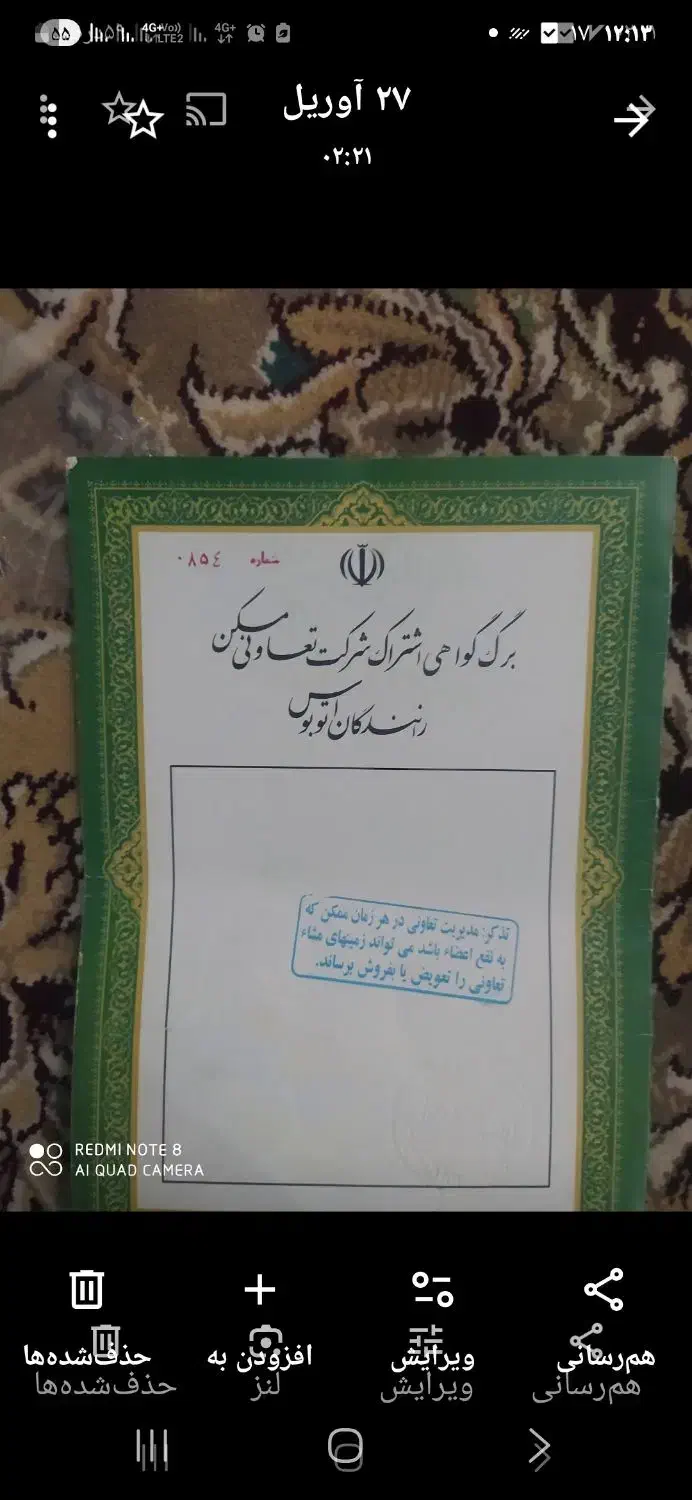 ۱۲:۱۳
۲۷ آوریل
۰۲:۲۱
شماره ۰۸۵٤
برگ گواهی اشتراک شرکت تعاونی مسکن
رانندگان اتوبوس
تذکر: مدیریت تعاونی در هر زمان ممکن که
به نفع اعضاء باشد می تواند زمینهای مشاء
تعاونی را تعویض یا بفروش برساند.
REDMI NOTE 8
AI QUAD CAMERA
هم‌رسانی ویرایش افزودن به حذف‌شده‌ها
هم‌رسانی ویرایش لنز حذف‌شده‌ها